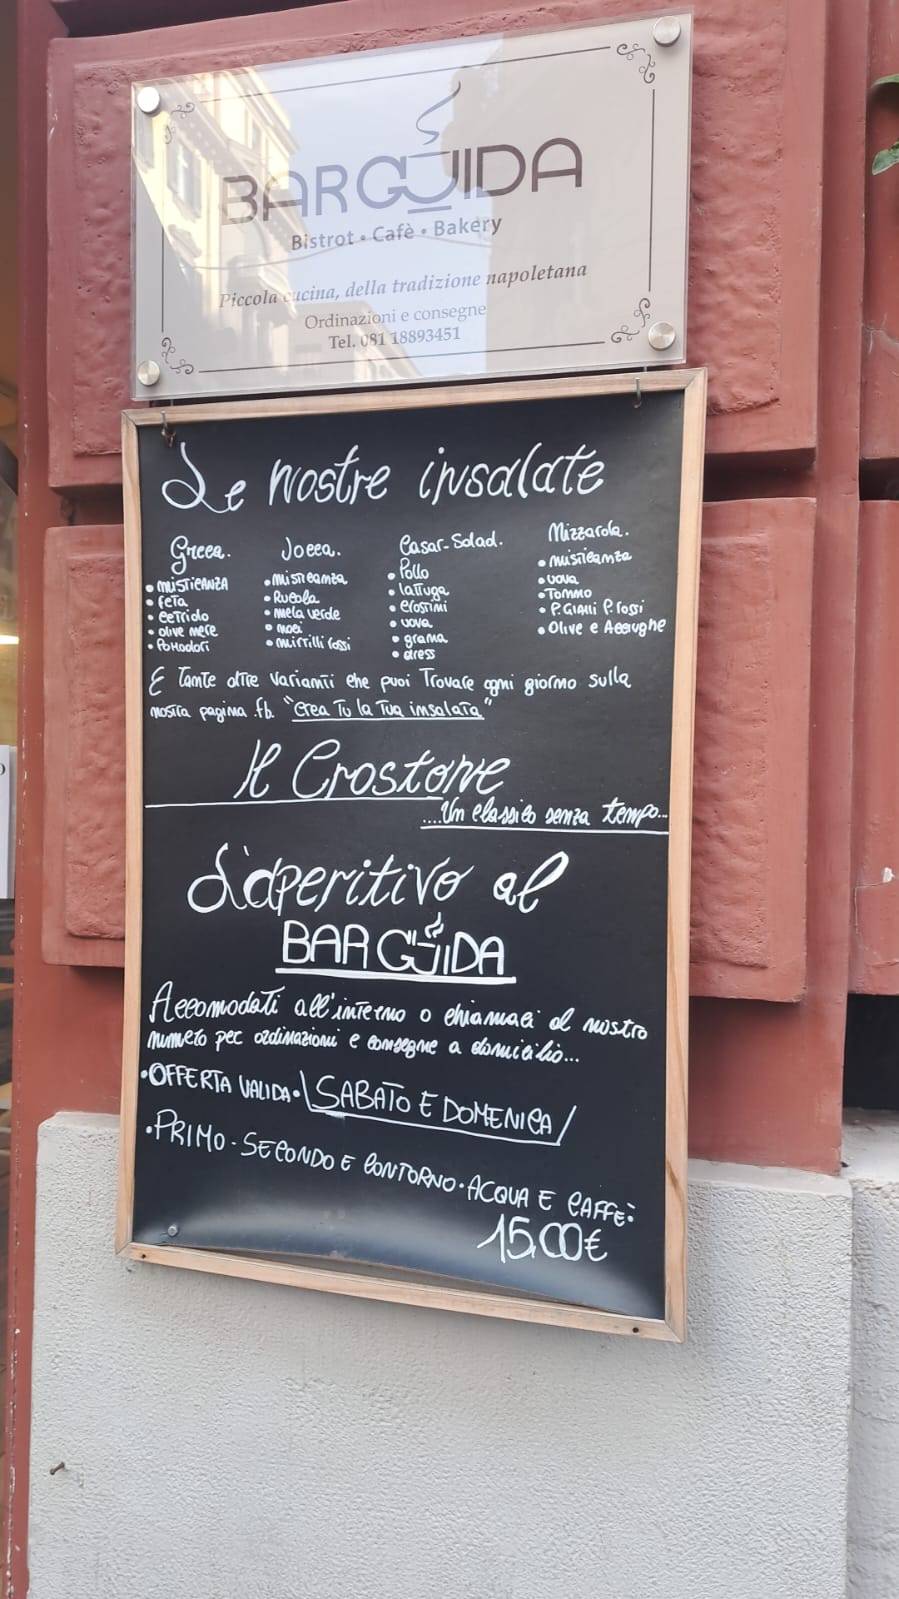 BAR GUIDA
Bistrot • Cafè • Bakery
Piccola cucina, della tradizione napoletana
Ordinazioni e consegne
Tel. 081 18893451
Le nostre insalate
Greca.
• MISTICANZA
• FETA
• CETRIOLO
• OLIVE NERE
• POMODORI
Jocca.
• MISTICANZA
• RUCOLA
• mela verde
• noci
• mirrilli rossi
Casar-Salad.
• Pollo
• lattuga
• crostini
• uova
• grana
• dress
Mizzarola.
• misticanza
• uova
• Tonno
• P. Gialli P. rossi
• Olive e Acciughe
E Tante altre Varianti che puoi Trovare ogni giorno sulla
nostra pagina .fb. "Crea Tu la Tua insalata"
Il Crostone
....Un classico senza tempo...
L'aperitivo al
BAR GUIDA
Accomodati all'interno o chiamaci al nostro
numero per ordinazioni e consegne a domicilio...
• OFFERTA VALIDA • \SABATO E DOMENICA/
• PRIMO - SECONDO E CONTORNO • ACQUA E CAFFE:
15,00€